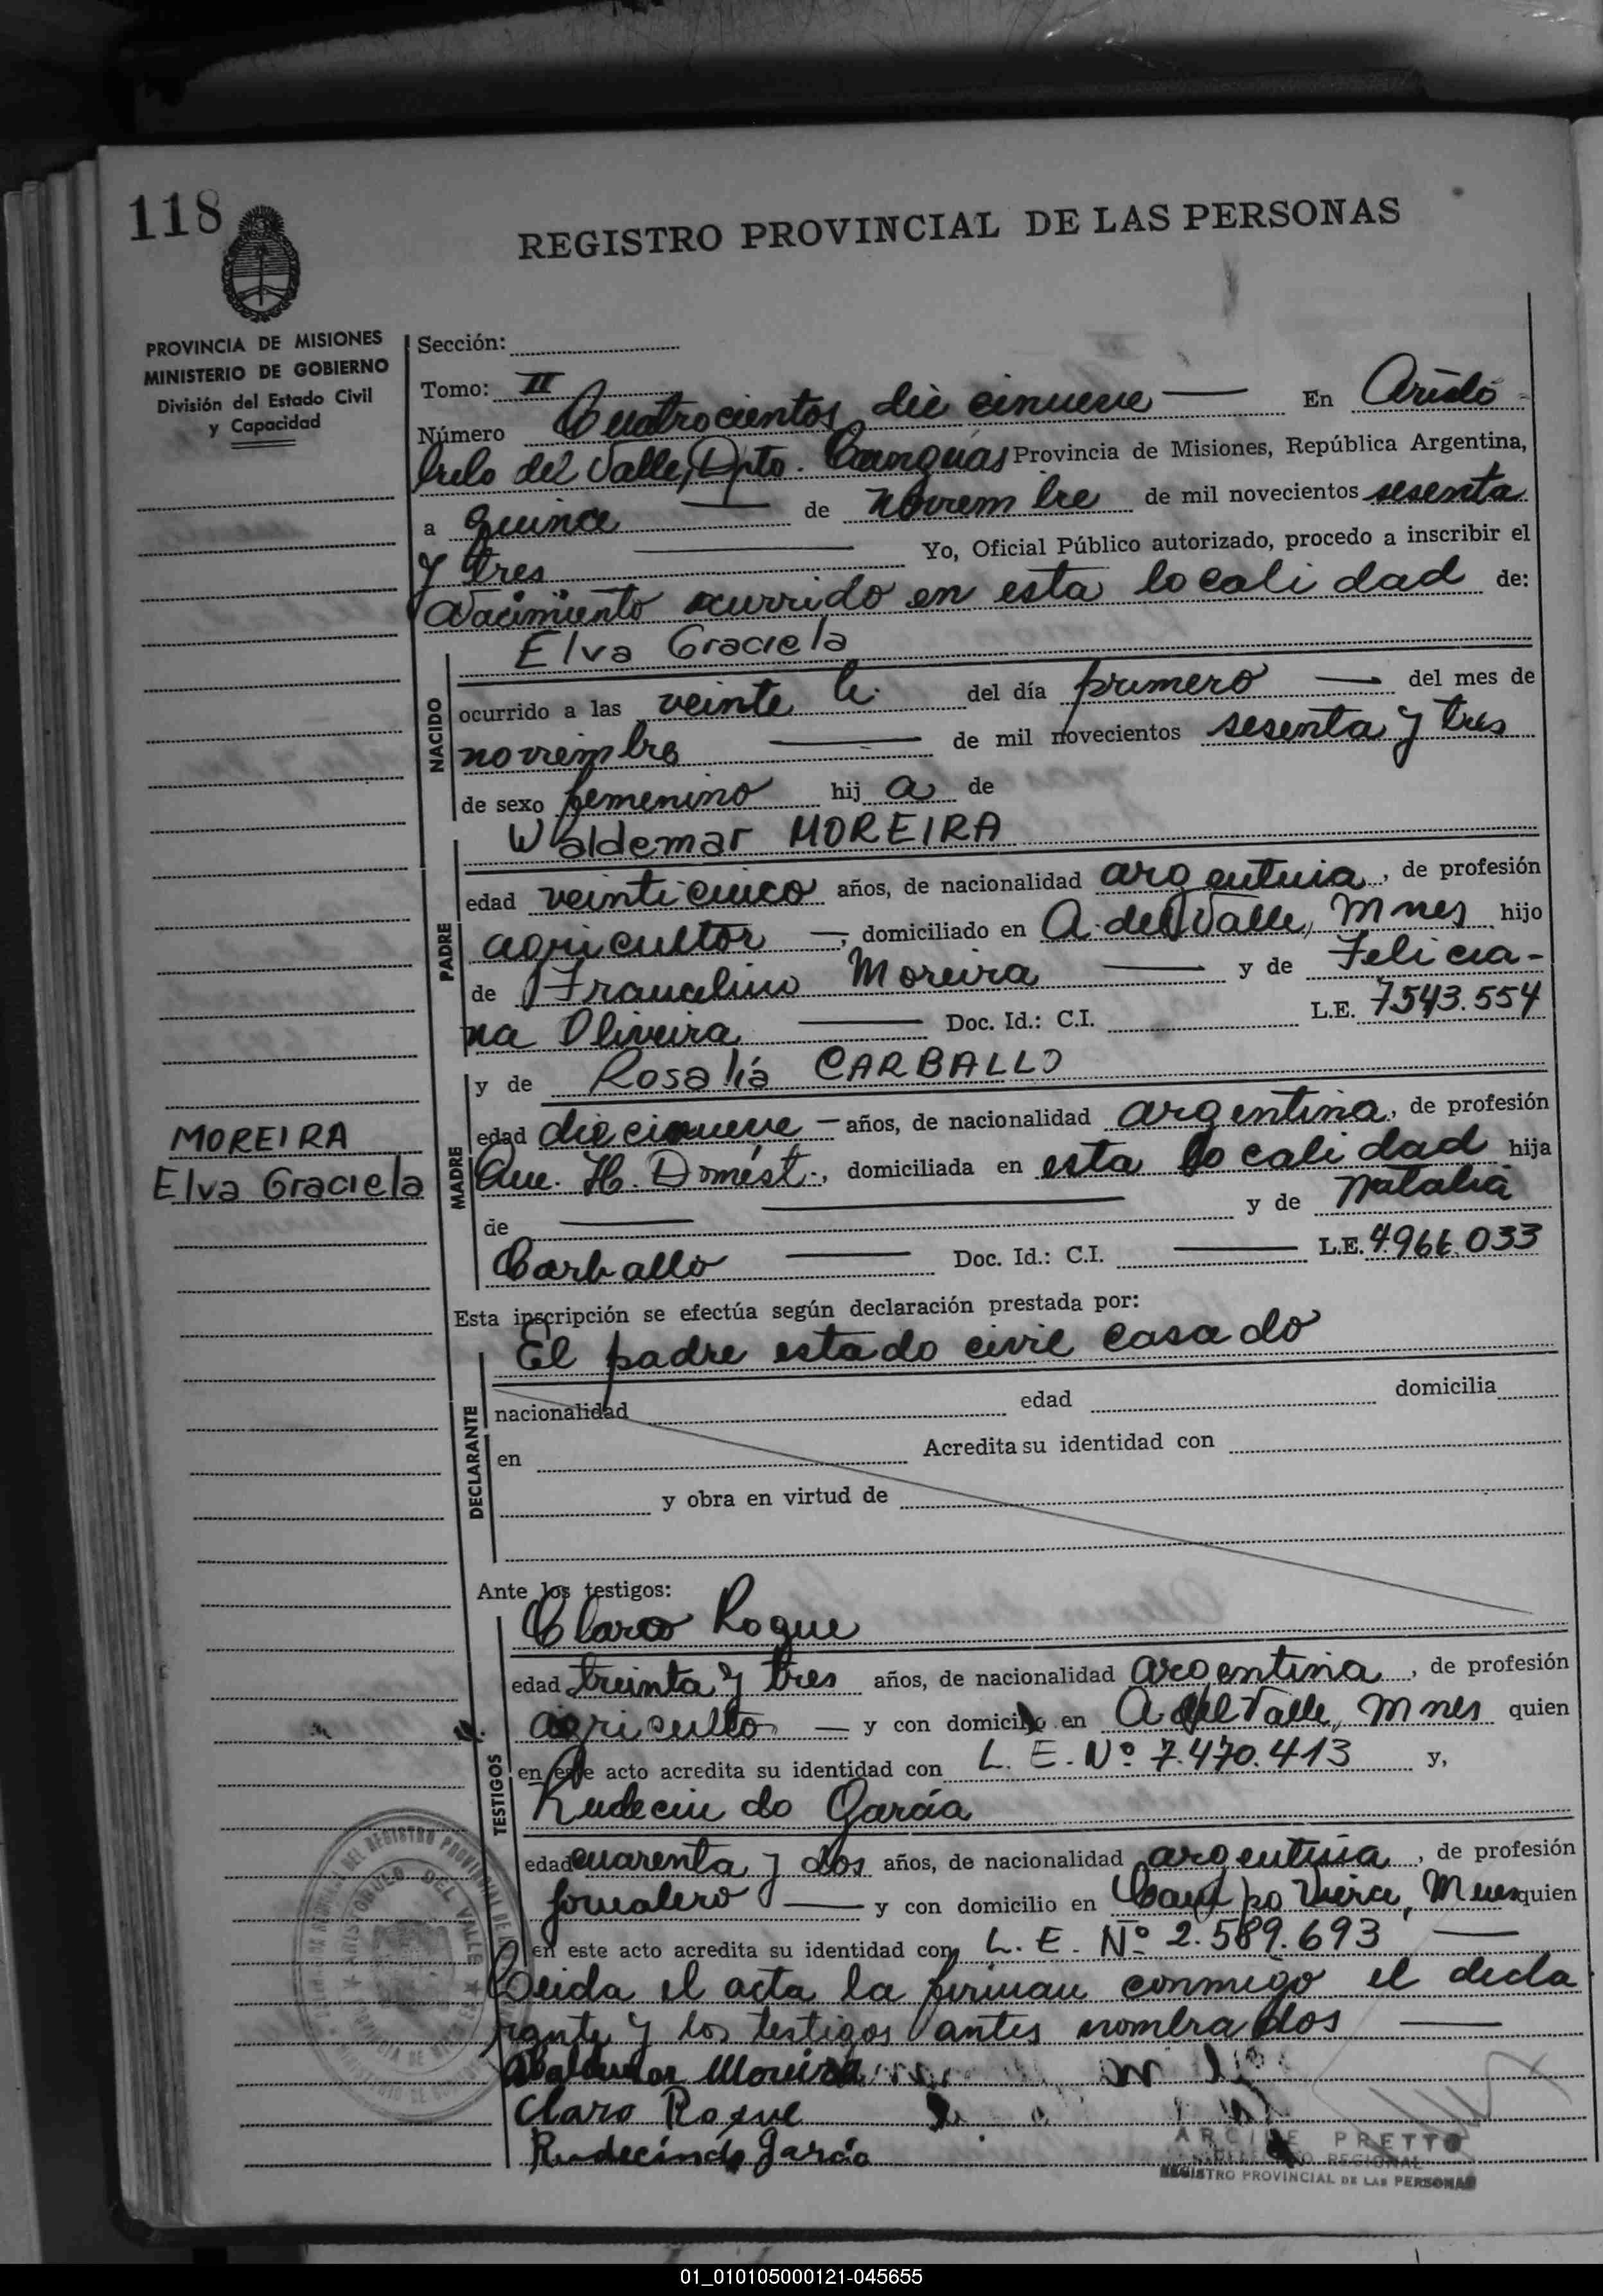 118
REGISTRO PROVINCIAL DE LAS PERSONAS
PROVINCIA DE MISIONES
MINISTERIO DE GOBIERNO
División del Estado Civil
y Capacidad
Sección:
Tomo: II
Número Cuatrocientos diecinueve — En Aristó-
bulo del Valle, Dpto. Cainguas Provincia de Misiones, República Argentina,
a quince — de noviembre de mil novecientos sesenta
y tres — Yo, Oficial Público autorizado, procedo a inscribir el
Nacimiento ocurrido en esta localidad de:
Elva Graciela
NACIDO
ocurrido a las veinte h. del día primero — del mes de
noviembre — de mil novecientos sesenta y tres
de sexo femenino hij a de
Waldemar MOREIRA
PADRE
edad veinticinco años, de nacionalidad argentina, de profesión
agricultor —, domiciliado en A. del Valle, Mnes hijo
de Francelino Moreira — y de Felicia-
na Oliveira — Doc. Id.: C.I. L.E. 7543.554
y de Rosalía CARBALLO
MADRE
edad diecinueve — años, de nacionalidad argentina, de profesión
Que. H. Domést., domiciliada en esta localidad hija
de — — y de Natalia
Carballo — Doc. Id.: C.I. — L.E. 4966.033
MOREIRA
Elva Graciela
Esta inscripción se efectúa según declaración prestada por:
El padre estado civil casado
DECLARANTE
nacionalidad edad domicilia
en Acredita su identidad con
y obra en virtud de
Ante los testigos:
Claro Roque
TESTIGOS
edad treinta y tres años, de nacionalidad argentina, de profesión
agricultor — y con domicilio en A. del Valle, Mnes quien
en este acto acredita su identidad con L. E. Nº 7.470.413 y,
Rudecindo García
edad cuarenta y dos años, de nacionalidad argentina, de profesión
jornalero — y con domicilio en Campo Viera, Mnes quien
en este acto acredita su identidad con L. E. Nº 2.589.693 —
Leida el acta la firman conmigo el decla
rante y los testigos antes nombrados —
Waldemar Moreira
Claro Roque
Rudecindo García
ARISTOBULO DEL VALLE
ARCI E PRETTO
REGIONAL
REGISTRO PROVINCIAL DE LAS PERSONAS
01_010105000121-045655